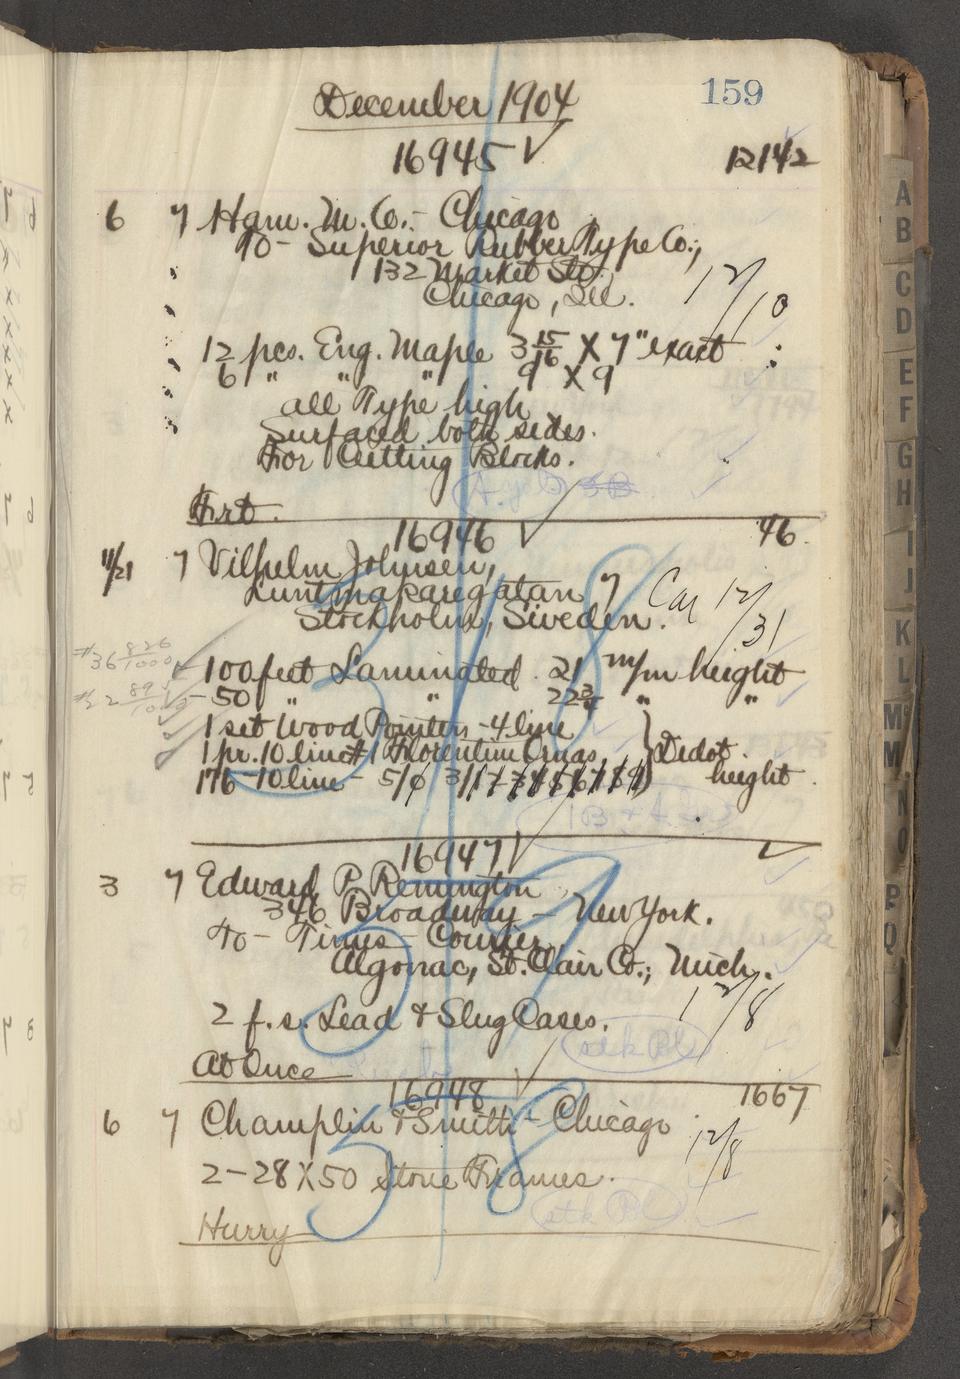 159
December 1904
16945 ✓ 12142
6 7 Ham. M. Co. - Chicago
To - Superior Rubber Type Co.,
132 Market St.,
Chicago, Ill. 12/10
12 pcs. Eng. Maple 3 15/16 X 7" exact
6 " " " 9 X 9
all Type high
Surfaced both sides.
For Cutting Blocks.
Frt.
16946 ✓ 46.
11/21 7 Vilhelm Johnsen,
Luntmakaregatan 7
Stockholm, Sweden. Car 12/31
#36 826/1000
100 feet Laminated 21 m/m height
- 50 " " 22 3/4 " "
1 set Wood Pointers - 4 line
1 pr. 10 line #1 Florentine Ornas. } Didot
176 - 10 line - 5/0 height.
16947 ✓
3 7 Edward P. Remington
346 Broadway - New York.
To - Times - Courier,
Algonac, St. Clair Co., Mich.
2 f. s. Lead & Slug Cases. 12/8
stk Bl
At Once
16948 ✓ 1667
6 7 Champlin & Smith - Chicago
12/8
2 - 28 X 50 Stone Frames.
stk Bl
Hurry
A
B
C
D
E
F
G
H
I
J
K
L
Mc
M
N
O
P
Q